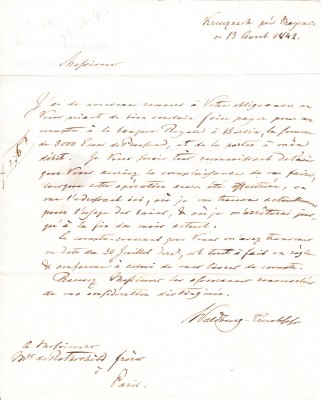 Kreuznach près Mayence
ce 13 Aout 1842.
Messieurs
J'ai de nouveau recours à Votre obligeance en
Vous priant de bien vouloir faire payer pour mon
compte à la banque Royale à Berlin, la somme
de 3000 Ecus de Prusse, et de la porter à mon
débit. Je Vous serais très reconnaissant de l'avis
que Vous auriez la complaisance de me faire,
lorsque cette opération sera été effectuée, en
me l'adressant ici, où je me trouve actuellement
pour l'usage des bains, & où je m'arrêterai jus-
qu'à la fin du mois actuel.
Le compte-courant que Vous m'avez transmis
en date du 30 Juillet, est tout à fait en règle
& conforme à celui de mes livres de compte.
Recevez Messieurs les assurances renouvelées
de ma considération distinguée.
Waldbourg-Truchsess
A Messieurs
Mrs de Rothschild frères
à
Paris.